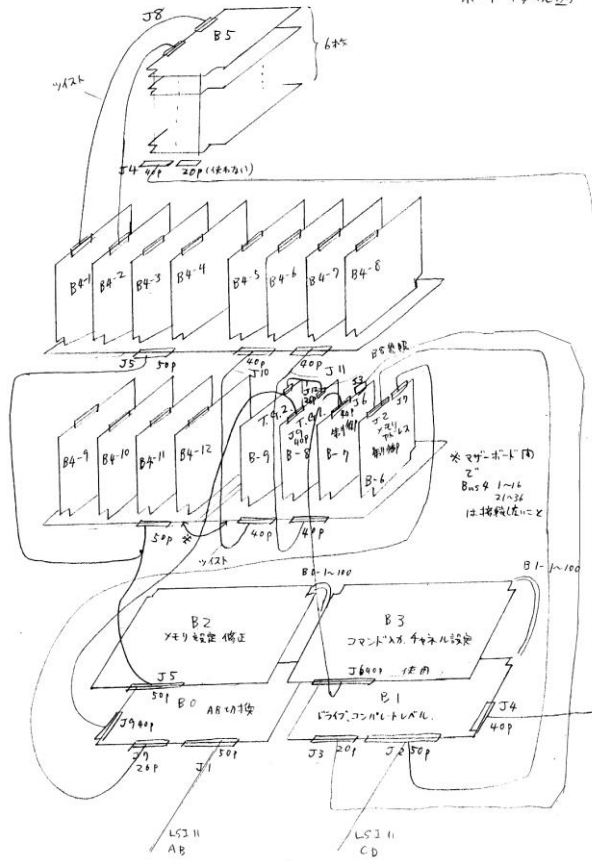 J8
B5
6枚
ツイスト
J4
40p
20p (使わない)
B4-1
B4-2
B4-3
B4-4
B4-5
B4-6
B4-7
B4-8
J5
50p
40p
J10
40p
J11
B4-9
B4-10
B4-11
B4-12
B-9
T.G.2.
J9
40p
B-8
T.G.1.
J6
40p
制御
B-7
J3
J2
J7
メモリ
アドレス
制御
B-6
50p
※
ツイスト
40p
40p
※マザーボード間
で
Bus4 1~16
21~36
は接続しないこと
B0-1~100
B1-1~100
B2
メモリ設定修正
B3
コマンド入力、チャネル設定
J5
50p
J6 40p 使用
B0
AB切換
B1
ドライブ、コンパレートレベル
J9 40p
J7
26p
J1
50p
J3
20p
J2
50p
J4
40p
LSI11
AB
LSI11
CD